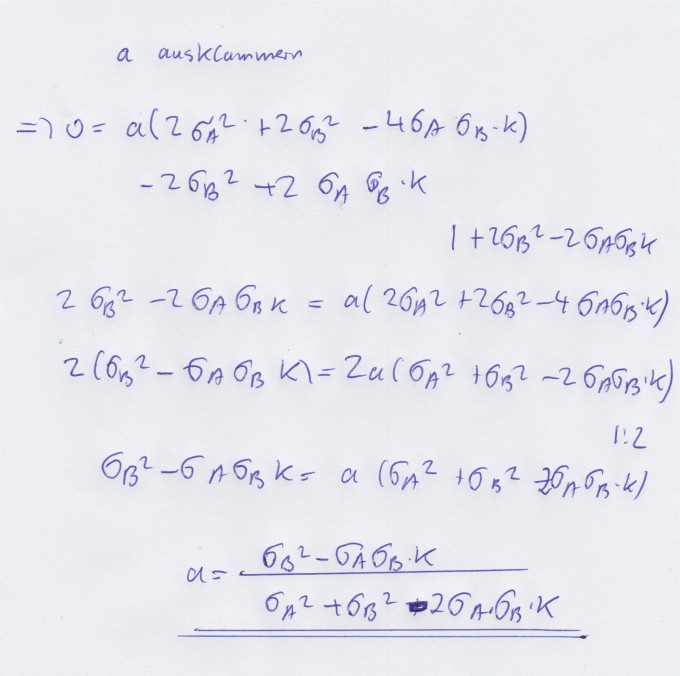 a ausklammern
=> 0 = a(2σA² + 2σB² - 4σA σB·k)
- 2σB² + 2 σA σB·k
| + 2σB² - 2σAσBk
2 σB² - 2σA σB k = a(2σA² + 2σB² - 4σAσB·k)
2(σB² - σA σB k) = 2a(σA² + σB² - 2σAσB·k)
|:2
σB² - σA σB k = a (σA² + σB² - 2σAσB·k)
a = (σB² - σAσB·k) / (σA² + σB² - 2σA·σB·k)